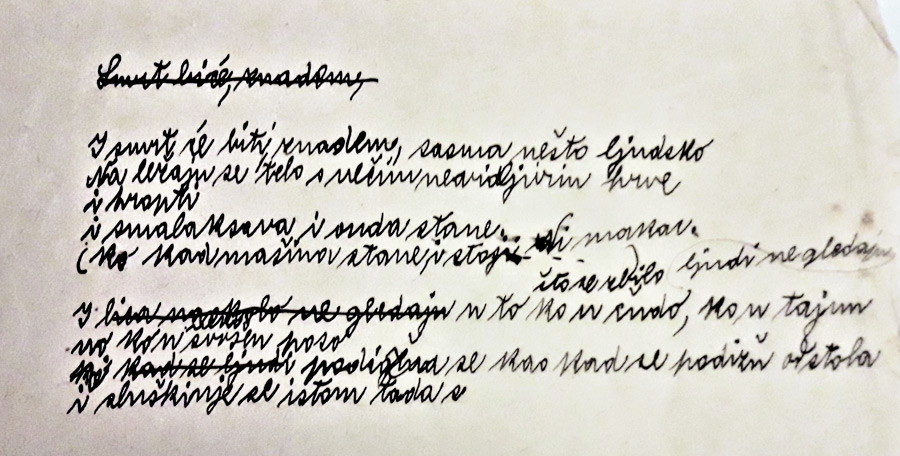 Smrt biće, znadem,
I smrt će biti, znadem, sasma nešto ljudsko
Na ležaju se telo s nečim nevidljivim hrve
i hropti
i smalaksava, i onda stane.
(ko kad mašina stane, i stoji. Ni makac.
što se zbilo ljudi ne gledaju
I lica naokolo ne gledaju u to ko u čudo, ko u tajnu
no ko u svoju poso
ko kad se ljudi podignu se kao kad se podižu od stola
i sluškinje se istom tada s